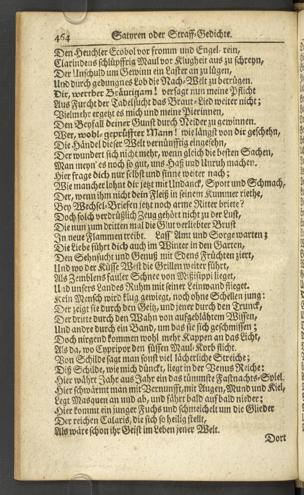 464 Satyren oder Straff-Gedichte.
Den Heuchler Scobol vor fromm und Engel-rein,
Clarindens schlüpffrig Maul vor Klugheit aus zu schreyn,
Der Unschuld um Gewinn ein Laster an zu lügen,
Und durch gedungnes Lob die Nach-Welt zu betrügen.
Dir, werther Bräutigam! versagt nun meine Pflicht
Aus Furcht der Tadelsucht das Braut-Lied weiter nicht;
Vielmehr ergetzt es mich und meine Pierinnen,
Den Beyfall deiner Gunst durch Reider zu gewinnen.
Wer, wohl geprüffter Mann! wie längst von dir geschehn,
Die Händel dieser Welt vernünfftig eingesehn,
Der wundert sich nicht mehr, wenn gleich die besten Sachen,
Man meyn' es noch so gut, uns Haß und Unruh machen.
Hier frage dich nur selbst und sinne weiter nach;
Wie mancher lohnt dir jetzt mit Undanck, Spott und Schmach,
Der, wenn ihm nicht dein Fleiß in seinem Kummer riethe,
Bey Wechsel-Briefen jetzt noch arme Ritter briete?
Doch solch verdrüßlich Zeug gehört nicht zu der Lust,
Die nun zum dritten mal die Glut verliebter Brust
In neue Flammen treibt. Laß' Amt und Sorge warten;
Die Liebe führt dich auch im Winter in den Garten,
Den Sehnsucht und Genuß mit Edens Früchten ziert,
Und wo der Küsse West die Grillen weiter führt,
Als Zemblens fauler Schnee von Mißisippi lieget,
Und unsers Landes Ruhm mit seiner Leinwand flieget.
Kein Mensch wird klug gewiegt, noch ohne Schellen jung:
Der zeigt sie durch den Geitz, und jener durch den Trunck,
Der dritte durch den Wahn von aufgeblähtem Wissen,
Und andre durch ein Band, um das sie sich geschmissen;
Doch nirgend kommen wohl mehr Kappen an das Licht,
Als da, wo Cypripor den süssen Maul-Korb flicht.
Von Schilde sagt man sonst viel lächerliche Streiche;
Diß Schilde, wie mich dünckt, liegt in der Venus Reiche:
Hier währt Jahr aus Jahr ein das tümmste Fastnachts-Spiel.
Hier schwärmt man mit Vernunfft, mit Augen, Mund und Kiel,
Legt Masquen an und ab, und fährt bald auf bald nieder;
Hier kommt ein junger Fuchs und schmeichelt um die Glieder
Der reichen Calaris, die sich so heilig stellt,
Als wäre schon ihr Geist im Leben jener Welt.
Dort